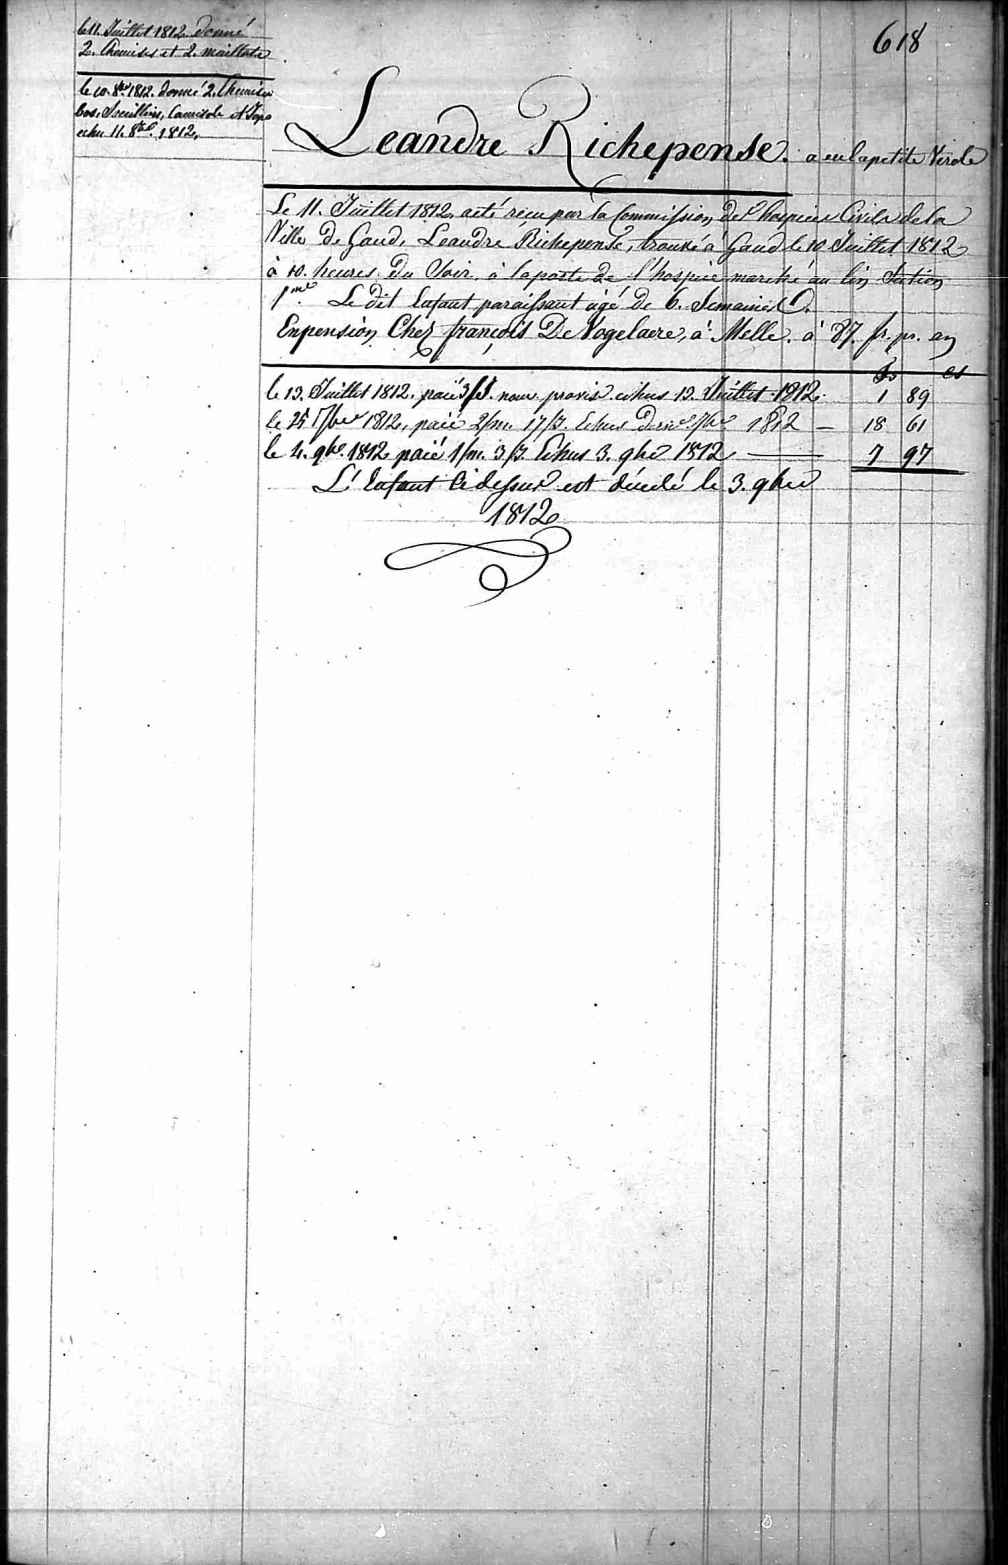 618
le 11. Juillet 1812. donné
2. Chemises et 2. maillots
le 10. 8bre 1812. donné 2. Chemises
bas. Camisole et Jupe
echu 11. 8bre. 1812.
Leandre Richepense. a eu la petite Verole
Le 11. Juillet 1812. a été réçu par la Commission de l'hospices Civils de la
Ville de Gand, Leandre Richepense, trouvé à Gand le 10 Juillet 1812
à 10. heures du Soir, à la porte de l'hospice marché au lin Section
1me. Le dit Enfant paraissant agé de 6. Semaines
En pension Chez françois De Vogelaere, à Melle. à 87. fr. pr. an
fs cs
le 13. Juillet 1812. paié 3/s. nour. provis. echus 13. Juillet 1812. 1 89
le 25 7bre 1812, paié 2/m. 17/J. Echus 7bre 1812 — 18 61
le 4. 9bre. 1812 paié 1/m. 3/J. Echus 3. 9bre 1812 — 7 97
L'Enfant Cidessus est décédé le 3. 9bre
1812